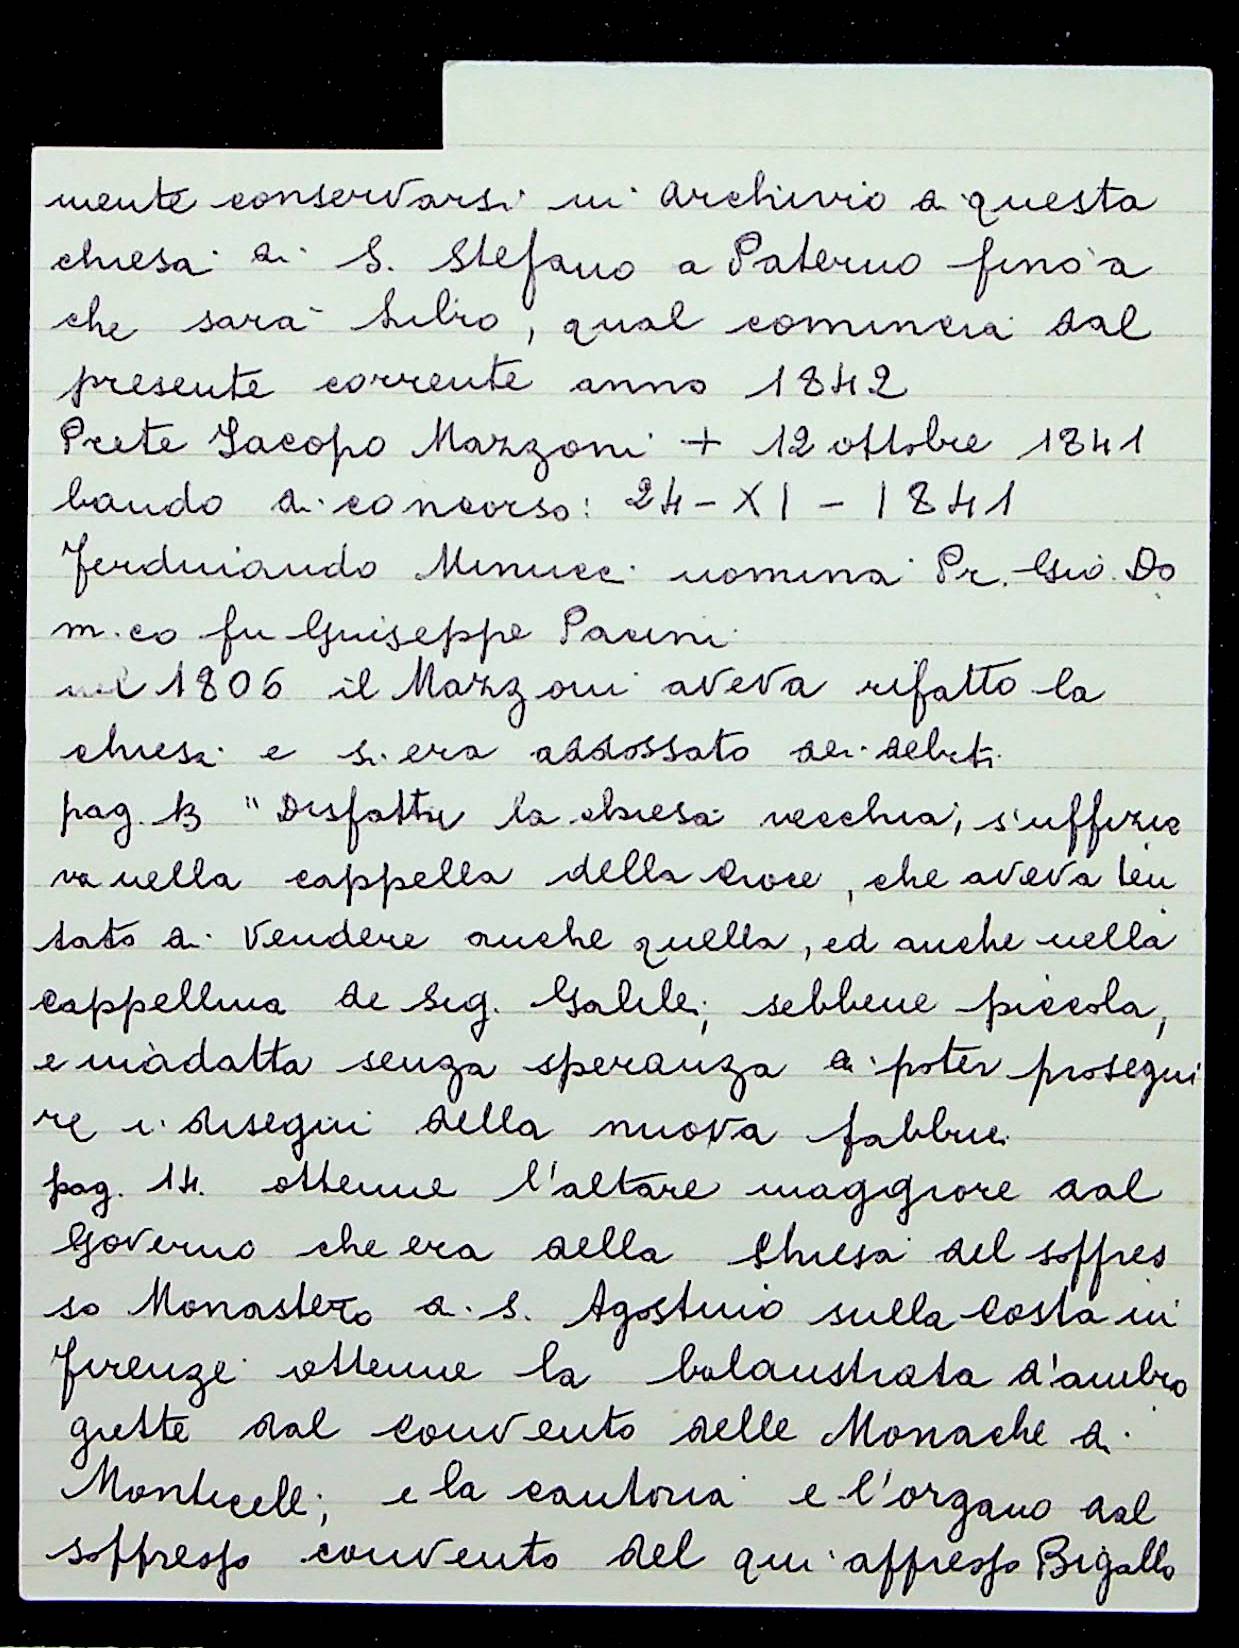 mente conservarsi in archivio di questa
chiesa di S. Stefano a Paterno fino a
che sarà libro, qual comincia dal
presente corrente anno 1842
Prete Jacopo Mazzoni + 12 ottobre 1841
bando di concorso: 24-XI-1841
Ferdinando Minucci nomina Pr. Gio. Do
m.co fu Giuseppe Pacini
nel 1806 il Mazzoni aveva rifatto la
chiesa e si era addossato dei debiti
pag. 13 "Disfatta la chiesa vecchia, s'uffizia
va nella cappella della Croce, che aveva ten
tato di vendere anche quella, ed anche nella
cappellina de Sig. Galilei, sebbene piccola,
e inadatta senza speranza di poter prosegui
re i disegni della nuova fabbrica
pag. 14. ottenne l'altare maggiore dal
Governo che era della Chiesa del soppres
so Monastero di S. Agostino sulla Costa in
Firenze ottenne la balaustrata d'ambro
gette dal convento delle Monache di
Monticelli, e la cantoria e l'organo dal
soppresso convento del qui appresso Bigallo